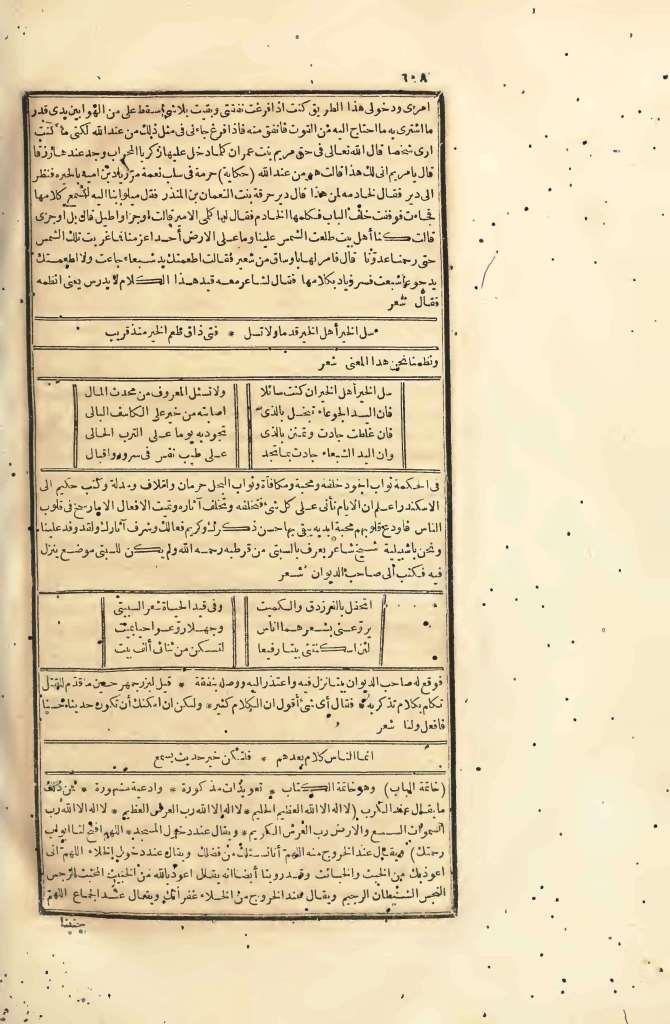 ٦٠٨
امرى ودخولى هذا الطريق كنت اذا فرغت نفقتى وبقيت بلا شئ يسقط على من الهوا بين يدى قدر
ما اشترى به ما احتاج اليه من القوت فأنفق منه فاذا فرغ جاءنى فى مثل ذلك من عند الله لكنى ما كنت
ارى شخصا قال الله تعالى فى حق مريم بنت عمران كلما دخل عليها زكريا المحراب وجد عندها رزقا
قال يا مريم انى لك هذا قالت هو من عند الله (حكاية) حرمة فى سلب نعمة مر زياد بن اميه بالحيره فنظر
الى دير فقال لخادمه لمن هذا قال دير حرقة بنت النعمان بن المنذر فقال ميلوا بنا اليه لنسمع كلامها
فجاءت فوقفت خلف الباب فكلمها الخادم فقال لها كلمى الامير قالت اوجز او اطيل قال بل اوجزى
قالت كنا أهل بيت طلعت الشمس علينا وما على الارض أحد اعز منا فما غربت تلك الشمس
حتى رحمنا عدونا قال فامر لها باوساق من شعير فقالت اطعمتك يد شبعاء جاعت ولا اطعمتك
يد جوعاء شبعت فسر زياد بكلامها فقال لشاعر معه قيد هذا الكلام لا يدرس يعنى انظمه
فقال شعر
سل الخير أهل الخير قدما ولا تسل * فتى ذاق طعم الخير منذ قريب
ونظمنا نحن هذا المعنى شعر
سل الخير أهل الخير ان كنت سائلا ولا تسئل المعروف من محدث المال
فان اليد الجوعاء تبخل بالذى اصابته من خير على الكاسف البالى
فان غلطت جادت وتمتن بالذى تجود به يوما على الترب الحالى
وان اليد الشبعاء جادت بما تجد على طيب نفس فى سرور واقبال
فى الحكمة ثواب الجود خلفه ومحبة ومكافاة وثواب البخل حرمان واتلاف ومذلة وكتب حكيم الى
الاسكندر اعلم ان الايام تأتى على كل شئ فتخلفه وتخلف آثاره وتميت الافعال الا ما رسخ فى قلوب
الناس فاودع قلوبهم محبة ابديه يبقى بها حسن ذكرك وكريم فعالك وشرف آثارك ولقد وفد علينا
ونحن باشبيلية شيخ شاعر يعرف بالسبتى من قرطبه رحمه الله ولم يكن للسبتى موضع ينزل
فيه فكتب الى صاحب الديوان شعر
اتحفل بالفرزدق والكميت وفى قيد الحياة شعر السبتى
يروعنى بشعرهما اناس وجهلا روعوا حيا بميت
لئن اسكنتنى بيتا رفيعا لتسكن من ثنائى ألف بيت
فوقع له صاحب الديوان ببيتا نزل فيه واعتذر اليه ووصله بنفقة * قيل لبزرجمهر حين ما قدم للقتل
تكلم بكلام تذكر به فقال أى شئ أقول ان الكلام كثير * ولكن ان امكنك أن تكون حديثا حسنا
فافعل ولنا شعر
انما الناس كلام بعدهم * فلتكن خير حديث يسمع
(خاتمة الباب) وهو خاتمة الكتاب * تعويذات مذكورة * وادعية مشهورة * فمن ذلك
ما يقال عند الكرب (لا اله الا الله العظيم الحليم * لا اله الا الله رب العرش العظيم * لا اله الا الله رب
السموات السبع والارض رب العرش الكريم * ويقال عند دخول المسجد * اللهم افتح لنا ابواب
رحمتك) ويقال عند الخروج منه اللهم انا نسئلك من فضلك ويقال عند دخول الخلاء اللهم انى
اعوذ بك من الخبث والخبائث وقد روينا أيضا انه يقال اعوذ بالله من الخبيث المخبث الرجس
النجس الشيطان الرجيم ويقال عند الخروج من الخلاء غفرانك ويقال عند الجماع اللهم
جنبنا